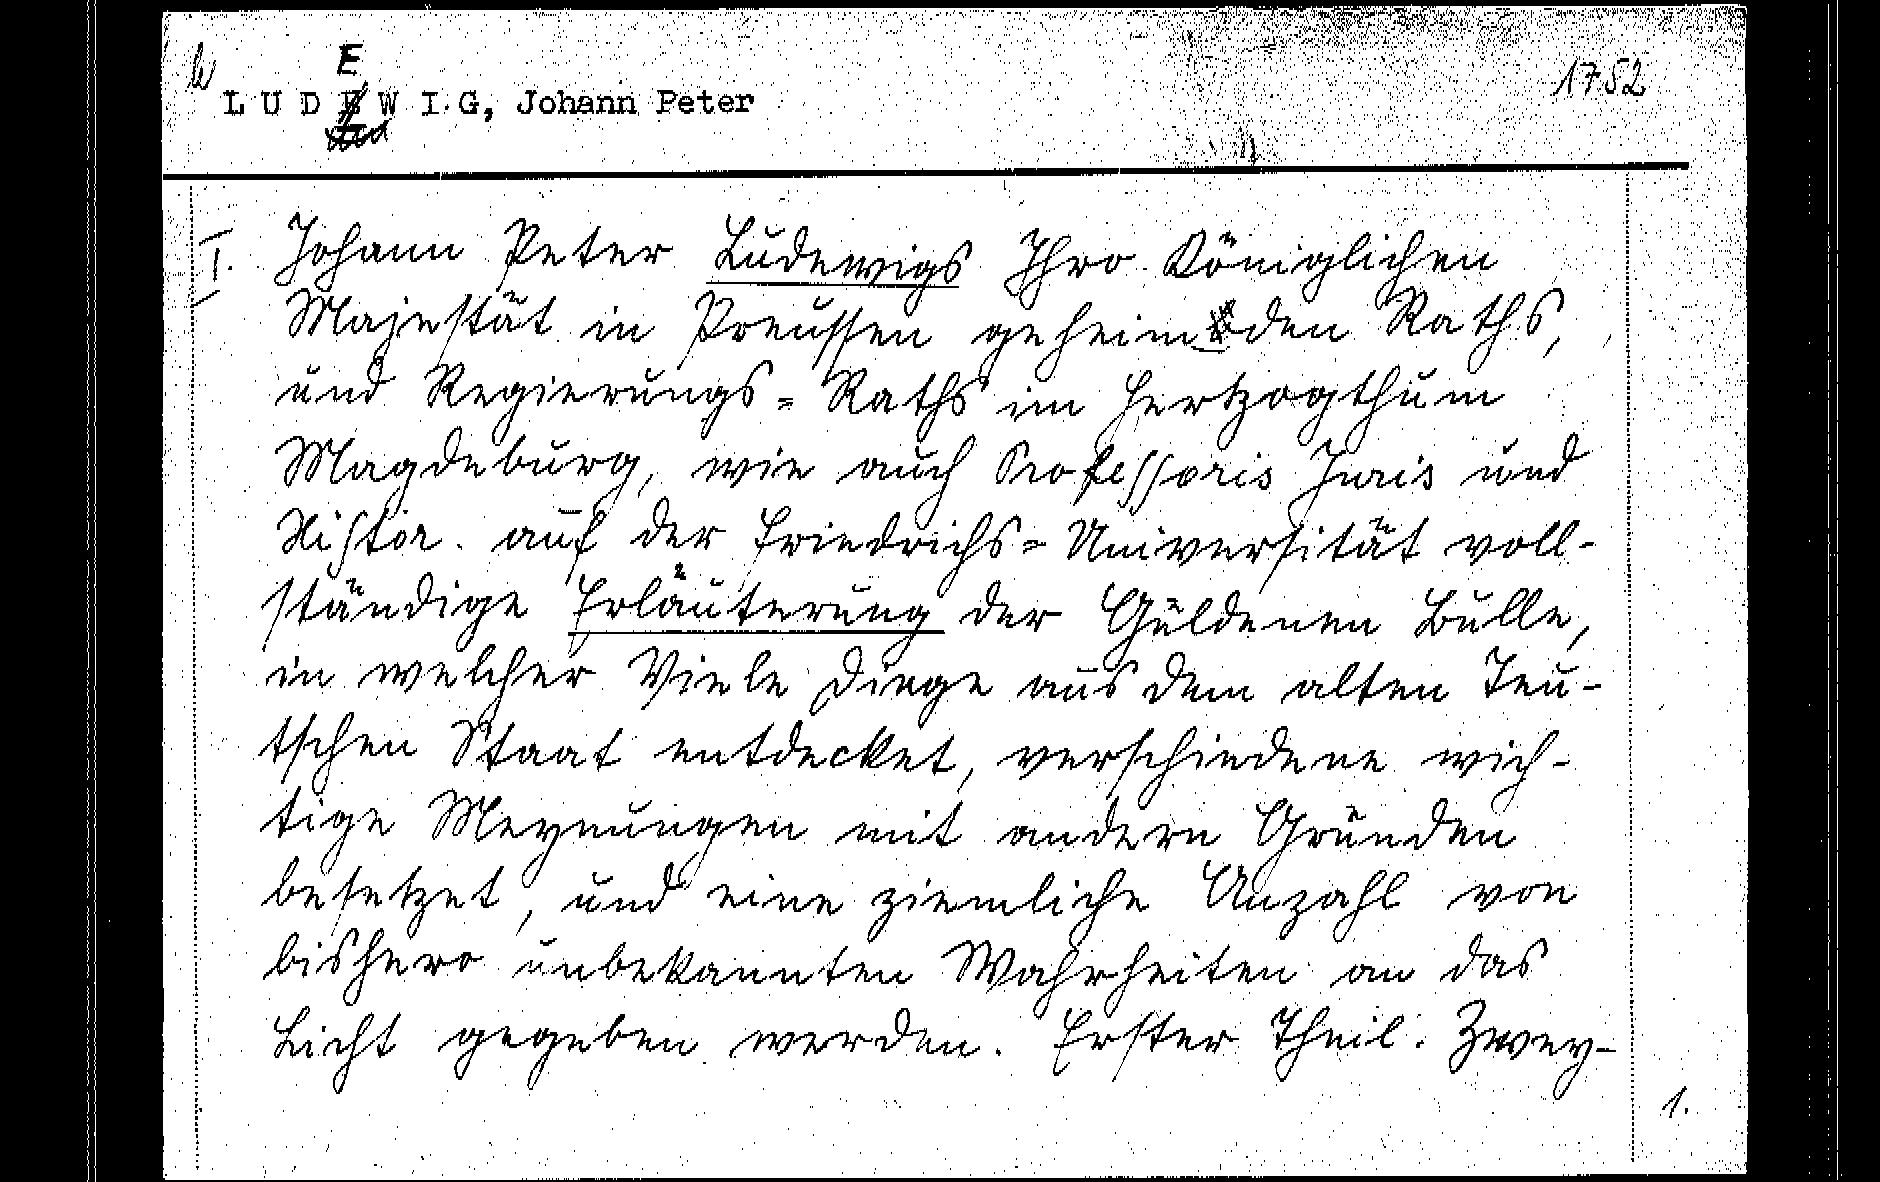 E
LUDEWIG, Johann Peter
1752
I. Johann Peter Ludewigs Ihro Königlichen
Majestät in Preussen geheimden Raths,
und Regierungs=Raths im Hertzogthum
Magdeburg, wie auch Professoris Juris und
Histor. auf der Friedrichs=Universität voll-
ständige Erläuterung der Güldenen Bulle,
in welcher Viele Dinge aus dem alten Teu-
tschen Staat entdecket, verschiedene wich-
tige Meynungen mit andern Gründen
besetzet, und eine ziemliche Anzahl von
bishero unbekannten Wahrheiten an das
Licht gegeben werden. Erster Theil. Zwey-
1.